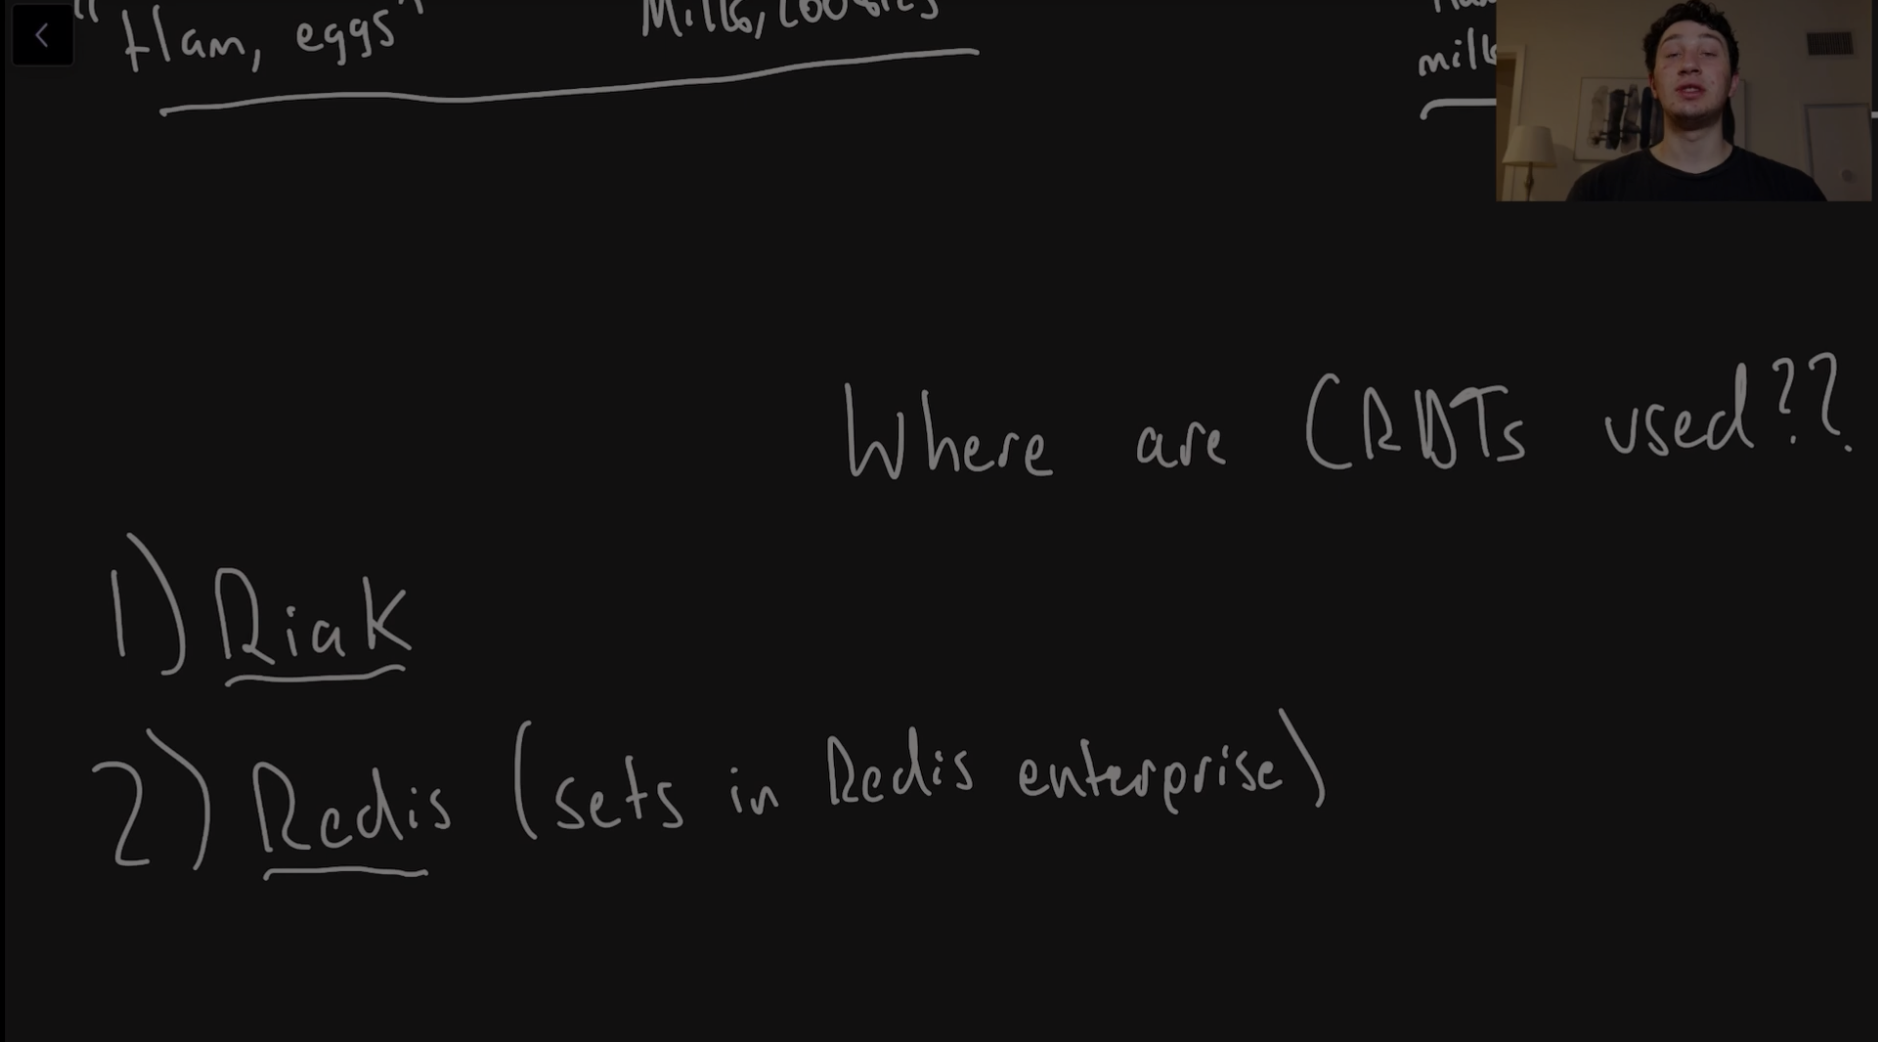 "Ham, eggs"
Milk, cookies
milk
Where are CRDTs used??
1) Riak
2) Redis (sets in Redis enterprise)